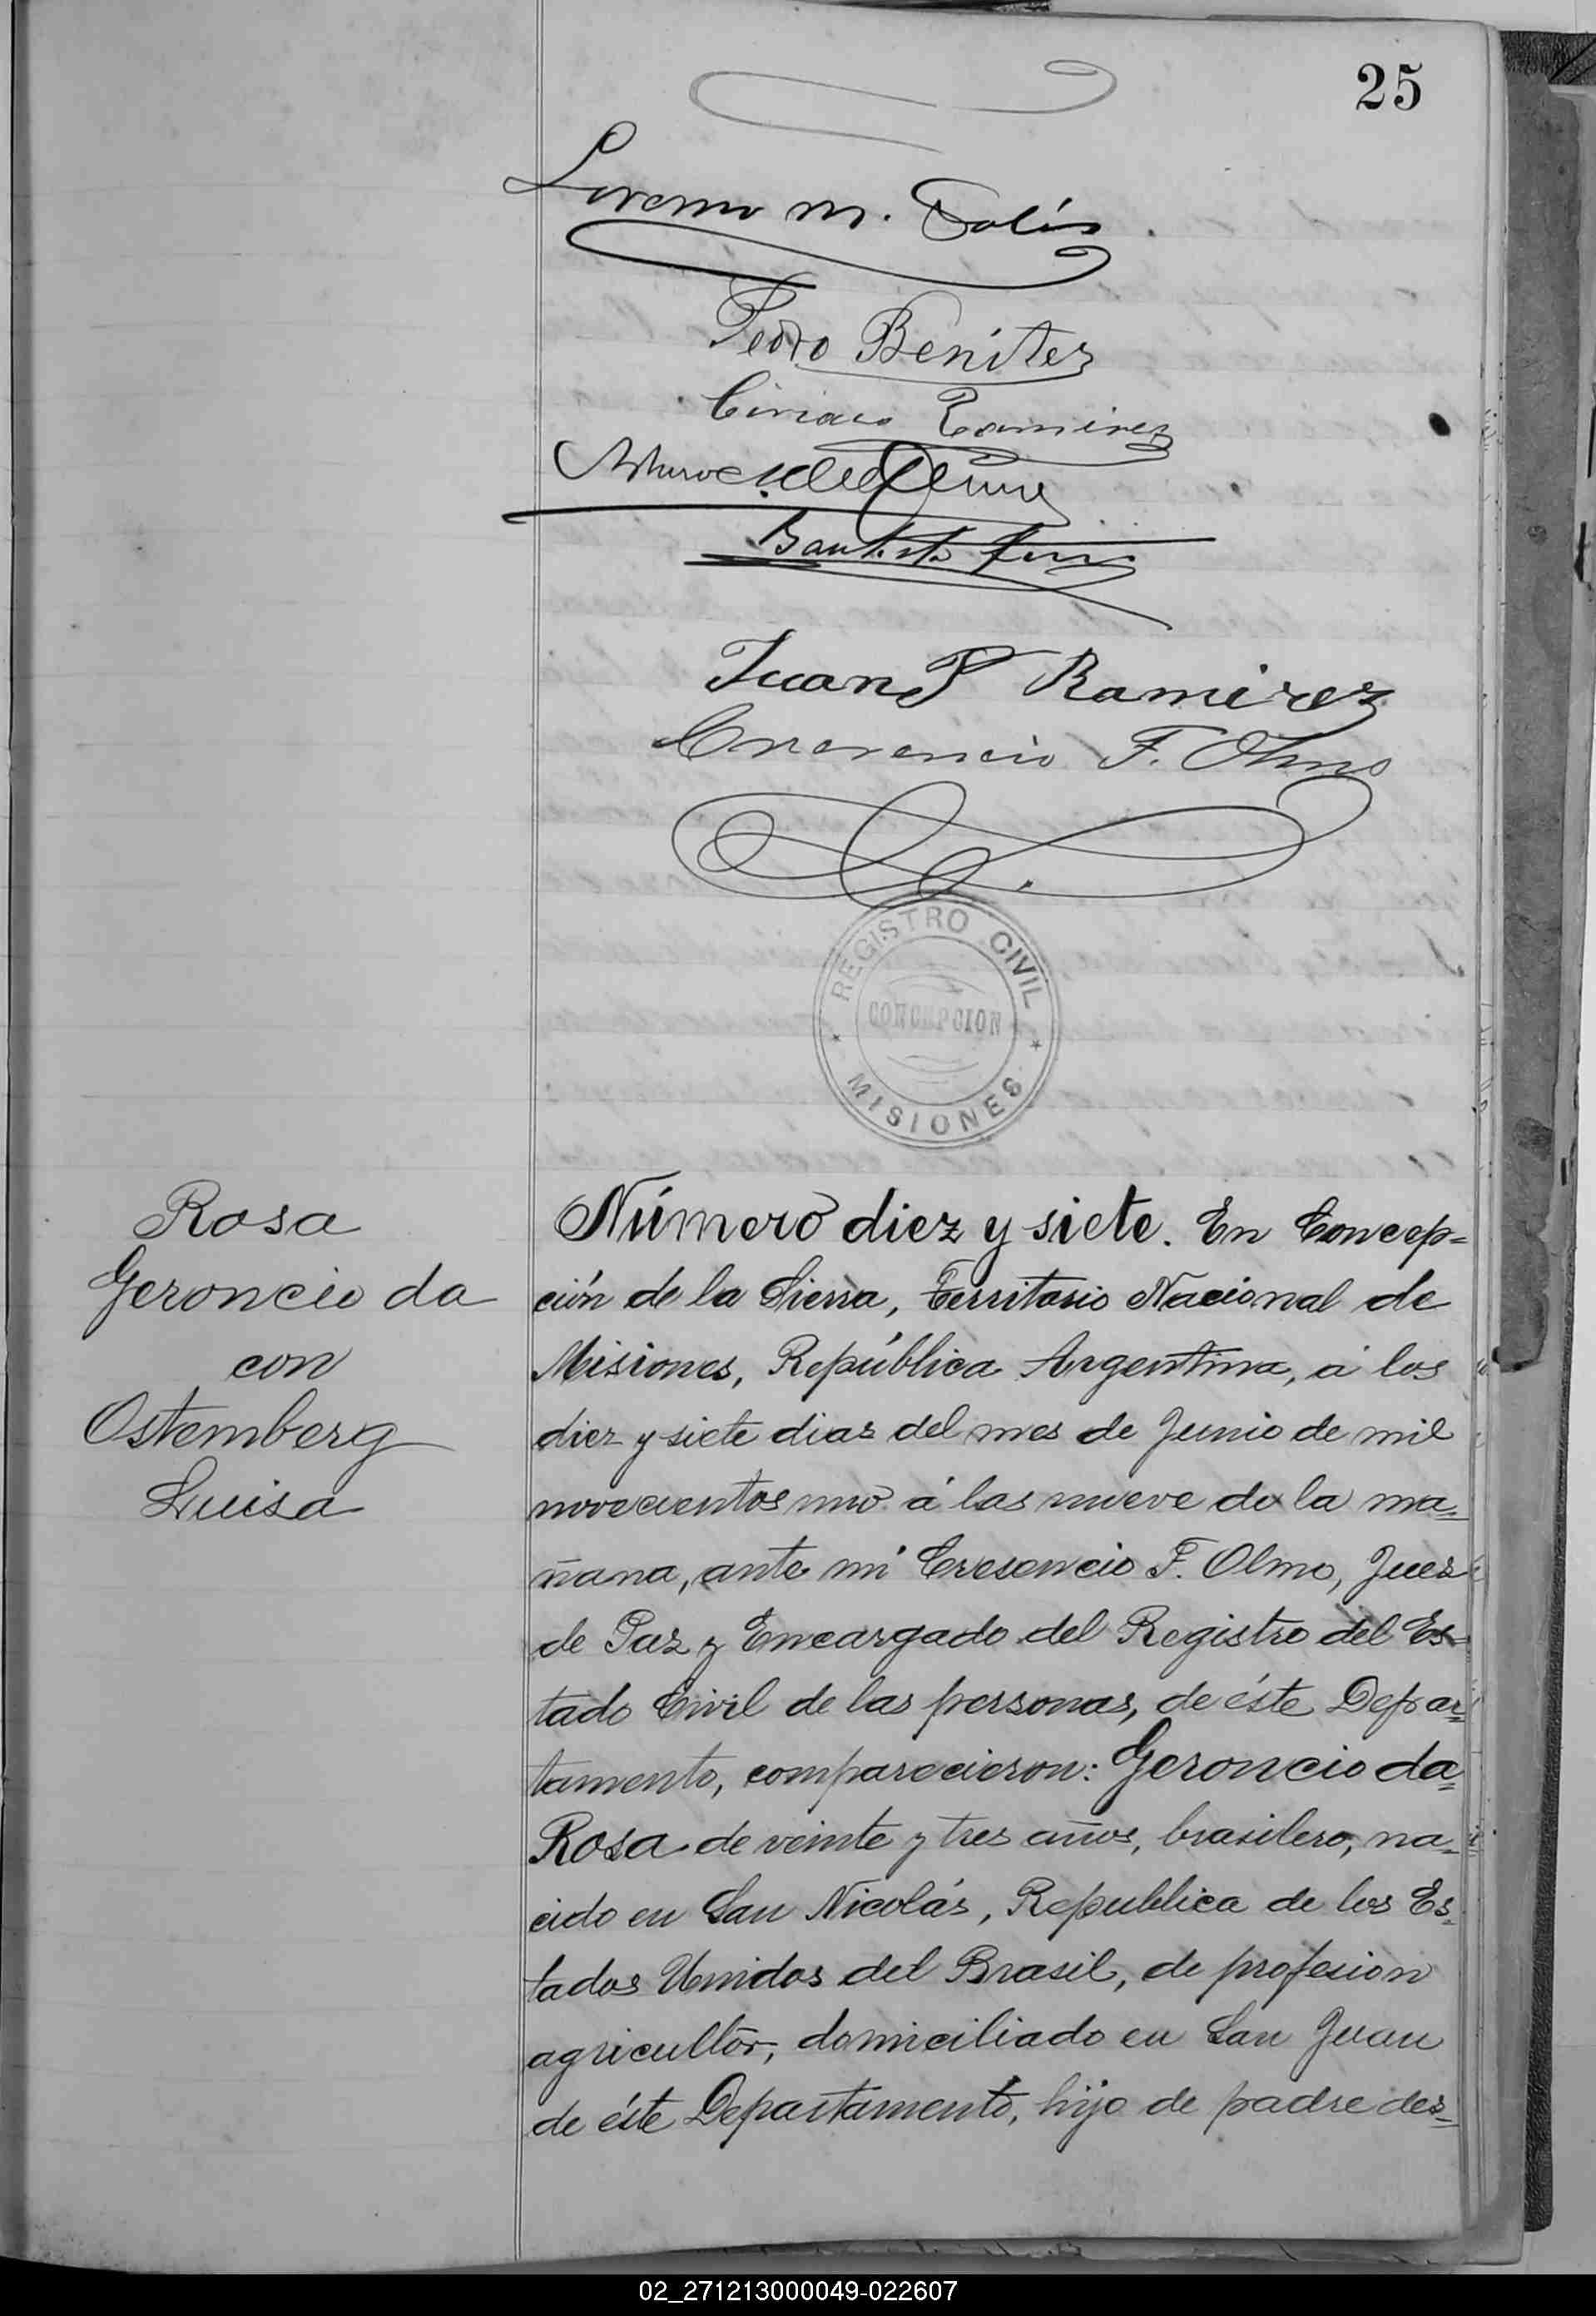 25
Lorenzo M. Solís
Pedro Benitez
Ciriaco Ramirez
Arturo
Bautista
Juan P Ramirez
Cresencio F. Olmo
REGISTRO CIVIL
CONCEPCION
MISIONES
Rosa
Geroncio da
con
Ostemberg
Luisa
Número diez y siete. En Concep=
ción de la Sierra, Territorio Nacional de
Misiones, República Argentina, á los
diez y siete dias del mes de Junio de mil
novecientos uno á las nueve de la ma=
ñana, ante mi Cresencio F. Olmo, Juez
de Paz y Encargado del Registro del Es=
tado Civil de las personas, de éste Depar=
tamento, comparecieron: Geroncio da=
Rosa de veinte y tres años, brasilero, na=
cido en San Nicolás, Republica de los Es=
tados Unidos del Brasil, de profesion
agricultor, domiciliado en San Juan
de éste Departamento, hijo de padre des=
02_271213000049-022607